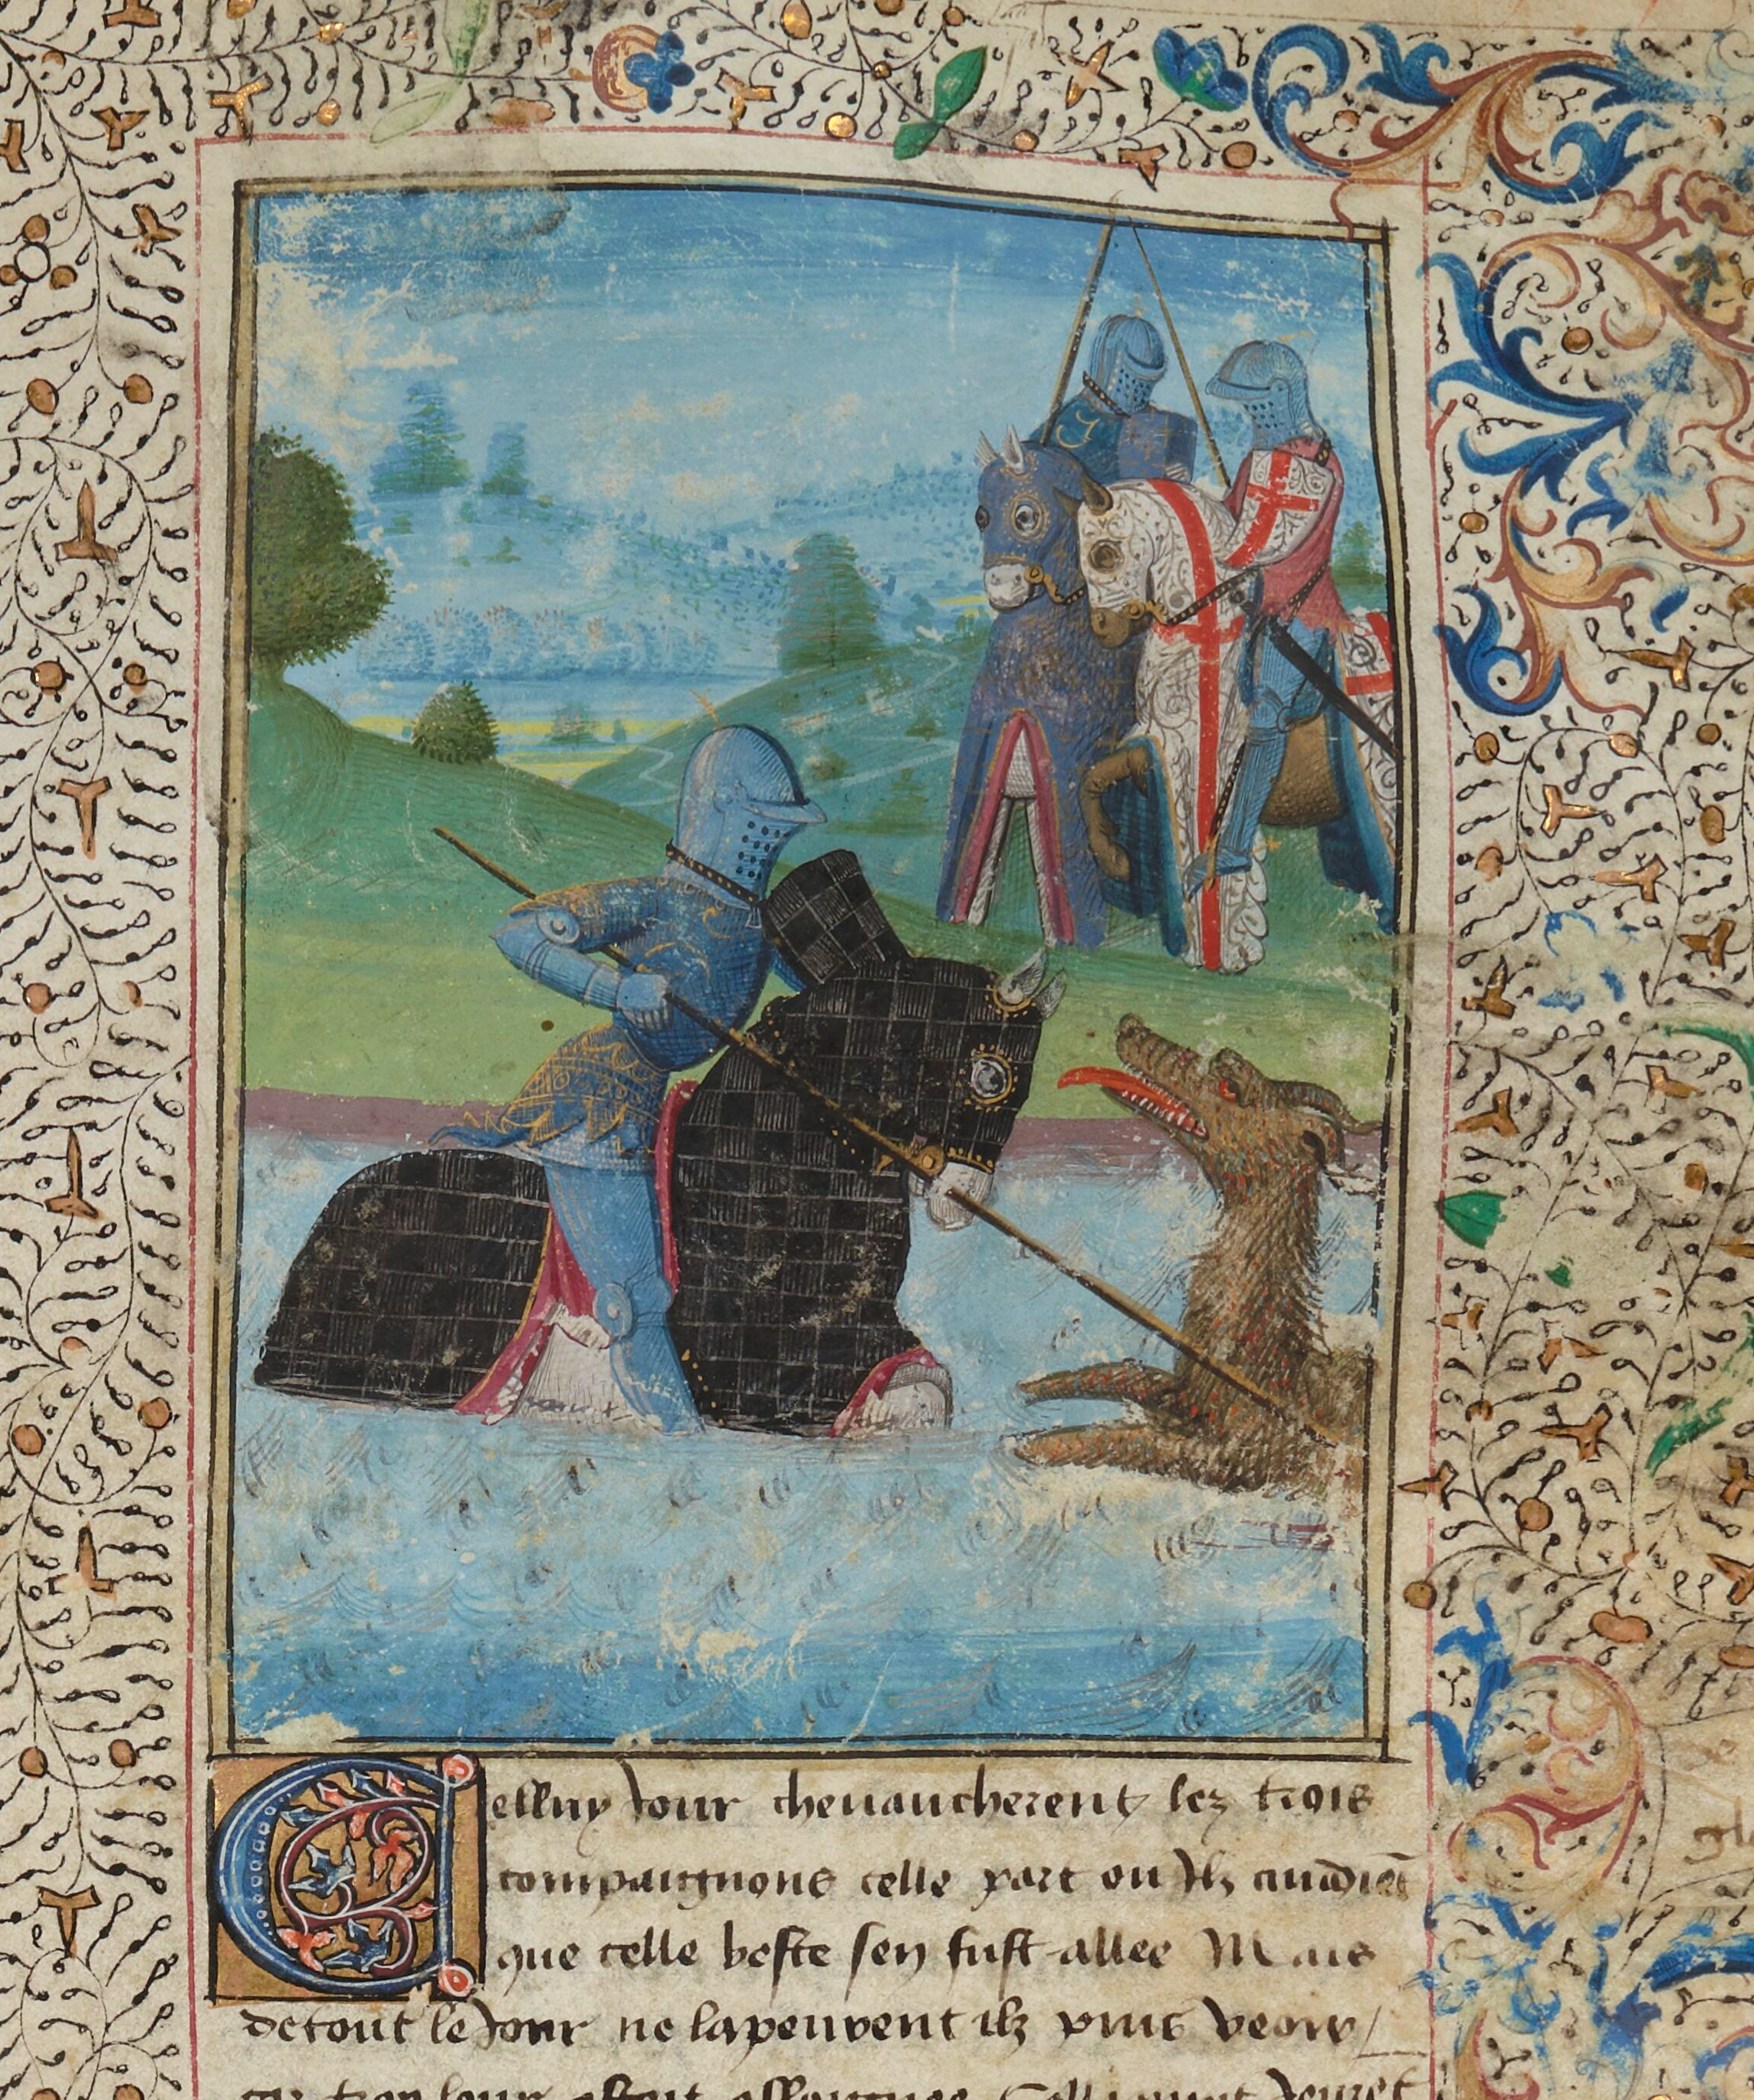 Celluy Jour cheuaucherent lez trois
compaignons celle part ou Ilz cuidiēt
que celle beste sen fust allee Mais
de tout le Jour ne la peurent ilz puis veoir /
car trop leur estoit